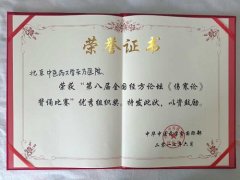 荣誉证书
北京中医药大学东方医院
荣获“第八届全国经方论坛《伤寒论》
背诵比赛”优秀组织奖，特发此状，以资鼓励。
中华中医药学会
二〇一 年六月